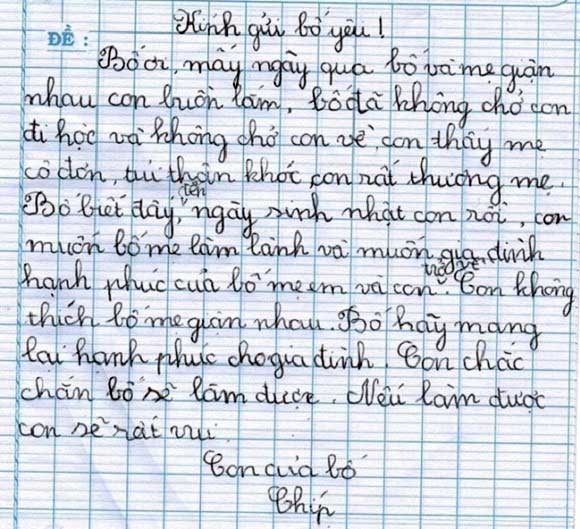 Kính gửi bố yêu!
ĐỀ:
Bố ơi, mấy ngày qua bố và mẹ giận
nhau con buồn lắm, bố đã không chở con
đi học và không chở con về, con thấy mẹ
cô đơn, tủi thân khóc, con rất thương mẹ.
Bố biết đấy, đến ngày sinh nhật con rồi, con
muốn bố mẹ làm lành và muốn gia đình
hạnh phúc của bố mẹ em và con trở về. Con không
thích bố mẹ giận nhau. Bố hãy mang
lại hạnh phúc cho gia đình. Con chắc
chắn bố sẽ làm được. Nếu làm được
con sẽ rất vui.
Con của bố
Chíp